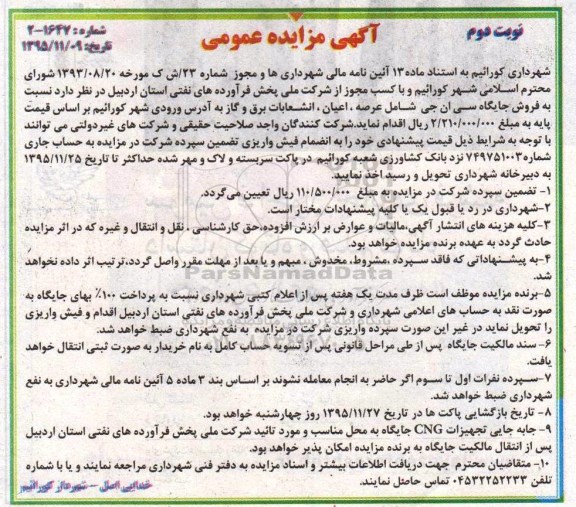 نوبت دوم
آگهی مزایده عمومی
شماره: ۱۶۴۷-۲
تاریخ: ۱۳۹۵/۱۱/۰۹
شهرداری کورائیم به استناد ماده۱۳ آئین نامه مالی شهرداری ها و مجوز شماره ۲۳/ش ک مورخه ۱۳۹۳/۰۸/۲۰ شورای
محترم اسلامی شهر کورائیم و با کسب مجوز از شرکت ملی پخش فرآورده های نفتی استان اردبیل در نظر دارد نسبت
به فروش جایگاه سی ان جی شامل عرصه ، اعیان ، انشعابات برق و گاز به آدرس ورودی شهر کورائیم بر اساس قیمت
پایه به مبلغ ۲/۲۱۰/۰۰۰/۰۰۰ ریال اقدام نماید.شرکت کنندگان واجد صلاحیت حقیقی و شرکت های غیردولتی می توانند
با توجه به شرایط ذیل قیمت پیشنهادی خود را به انضمام فیش واریزی تضمین سپرده شرکت در مزایده به حساب جاری
شماره۷۴۹۷۵۱۰۰۳ نزد بانک کشاورزی شعبه کورائیم در پاکت سربسته و لاک و مهر شده حداکثر تا تاریخ ۱۳۹۵/۱۱/۲۵
به دبیرخانه شهرداری تحویل و رسید اخذ نمایید
۱- تضمین سپرده شرکت در مزایده به مبلغ ۱۱۰/۵۰۰/۰۰۰ ریال تعیین می‌گردد.
۲-شهرداری در رد یا قبول یک یا کلیه پیشنهادات مختار است.
۳-کلیه هزینه های انتشار آگهی،مالیات و عوارض بر ارزش افزوده،حق کارشناسی ، نقل و انتقال و غیره که در اثر مزایده
حادث گردد به عهده برنده مزایده خواهد بود.
۴-به پیشنهاداتی که فاقد سپرده ،مشروط، مخدوش ، مبهم و یا بعد از مهلت مقرر واصل گردد،ترتیب اثر داده نخواهد
شد.
ParsNamadData
۵-برنده مزایده موظف است ظرف مدت یک هفته پس از اعلام کتبی شهرداری نسبت به پرداخت ۱۰۰٪ بهای جایگاه به
صورت نقد به حساب های اعلامی شهرداری و شرکت ملی پخش فرآورده های نفتی استان اردبیل اقدام و فیش واریزی
را تحویل نماید در غیر این صورت سپرده واریزی شرکت در مزایده به نفع شهرداری ضبط خواهد شد.
۶- سند مالکیت جایگاه پس از طی مراحل قانونی پس از تسویه حساب کامل به نام خریدار به صورت ثبتی انتقال خواهد
یافت.
۷-سپرده نفرات اول تا سوم اگر حاضر به انجام معامله نشوند بر اساس بند ۳ ماده ۵ آئین نامه مالی شهرداری به نفع
شهرداری ضبط خواهد شد.
۸- تاریخ بازگشایی پاکت ها در تاریخ ۱۳۹۵/۱۱/۲۷ روز چهارشنبه خواهد بود.
۹- جابه جایی تجهیزات CNG جایگاه به محل مناسب و مورد تائید شرکت ملی پخش فرآورده های نفتی استان اردبیل
پس از انتقال مالکیت جایگاه به برنده مزایده امکان پذیر خواهد بود.
۱۰- متقاضیان محترم جهت دریافت اطلاعات بیشتر و اسناد مزایده به دفتر فنی شهرداری مراجعه نمایند و یا با شماره
تلفن ۰۴۵۳۲۲۵۲۲۳۳ تماس حاصل نمایند.
خدایی اصل - شهردار کورائیم